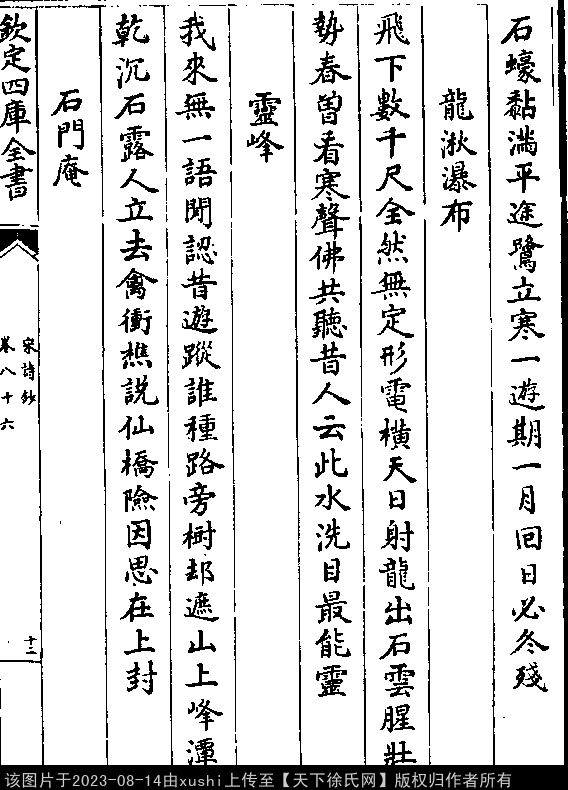 石蠔黏滿平途鷺立寒一遊期一月回日必冬殘
龍湫瀑布
飛下數千尺全然無定形電橫天日射龍出石雲腥壯
勢春曽看寒聲佛共聽昔人云此水洗目最能靈
靈峰
我來無一語聞認昔遊蹤誰種路旁樹却遮山上峰潭
乾沉石露人立去禽衝樵説仙橋險因思在上封
石門庵
欽定四庫全書
宋詩鈔
卷八十六
十二
该图片于2023-08-14由xushi上传至【天下徐氏网】版权归作者所有